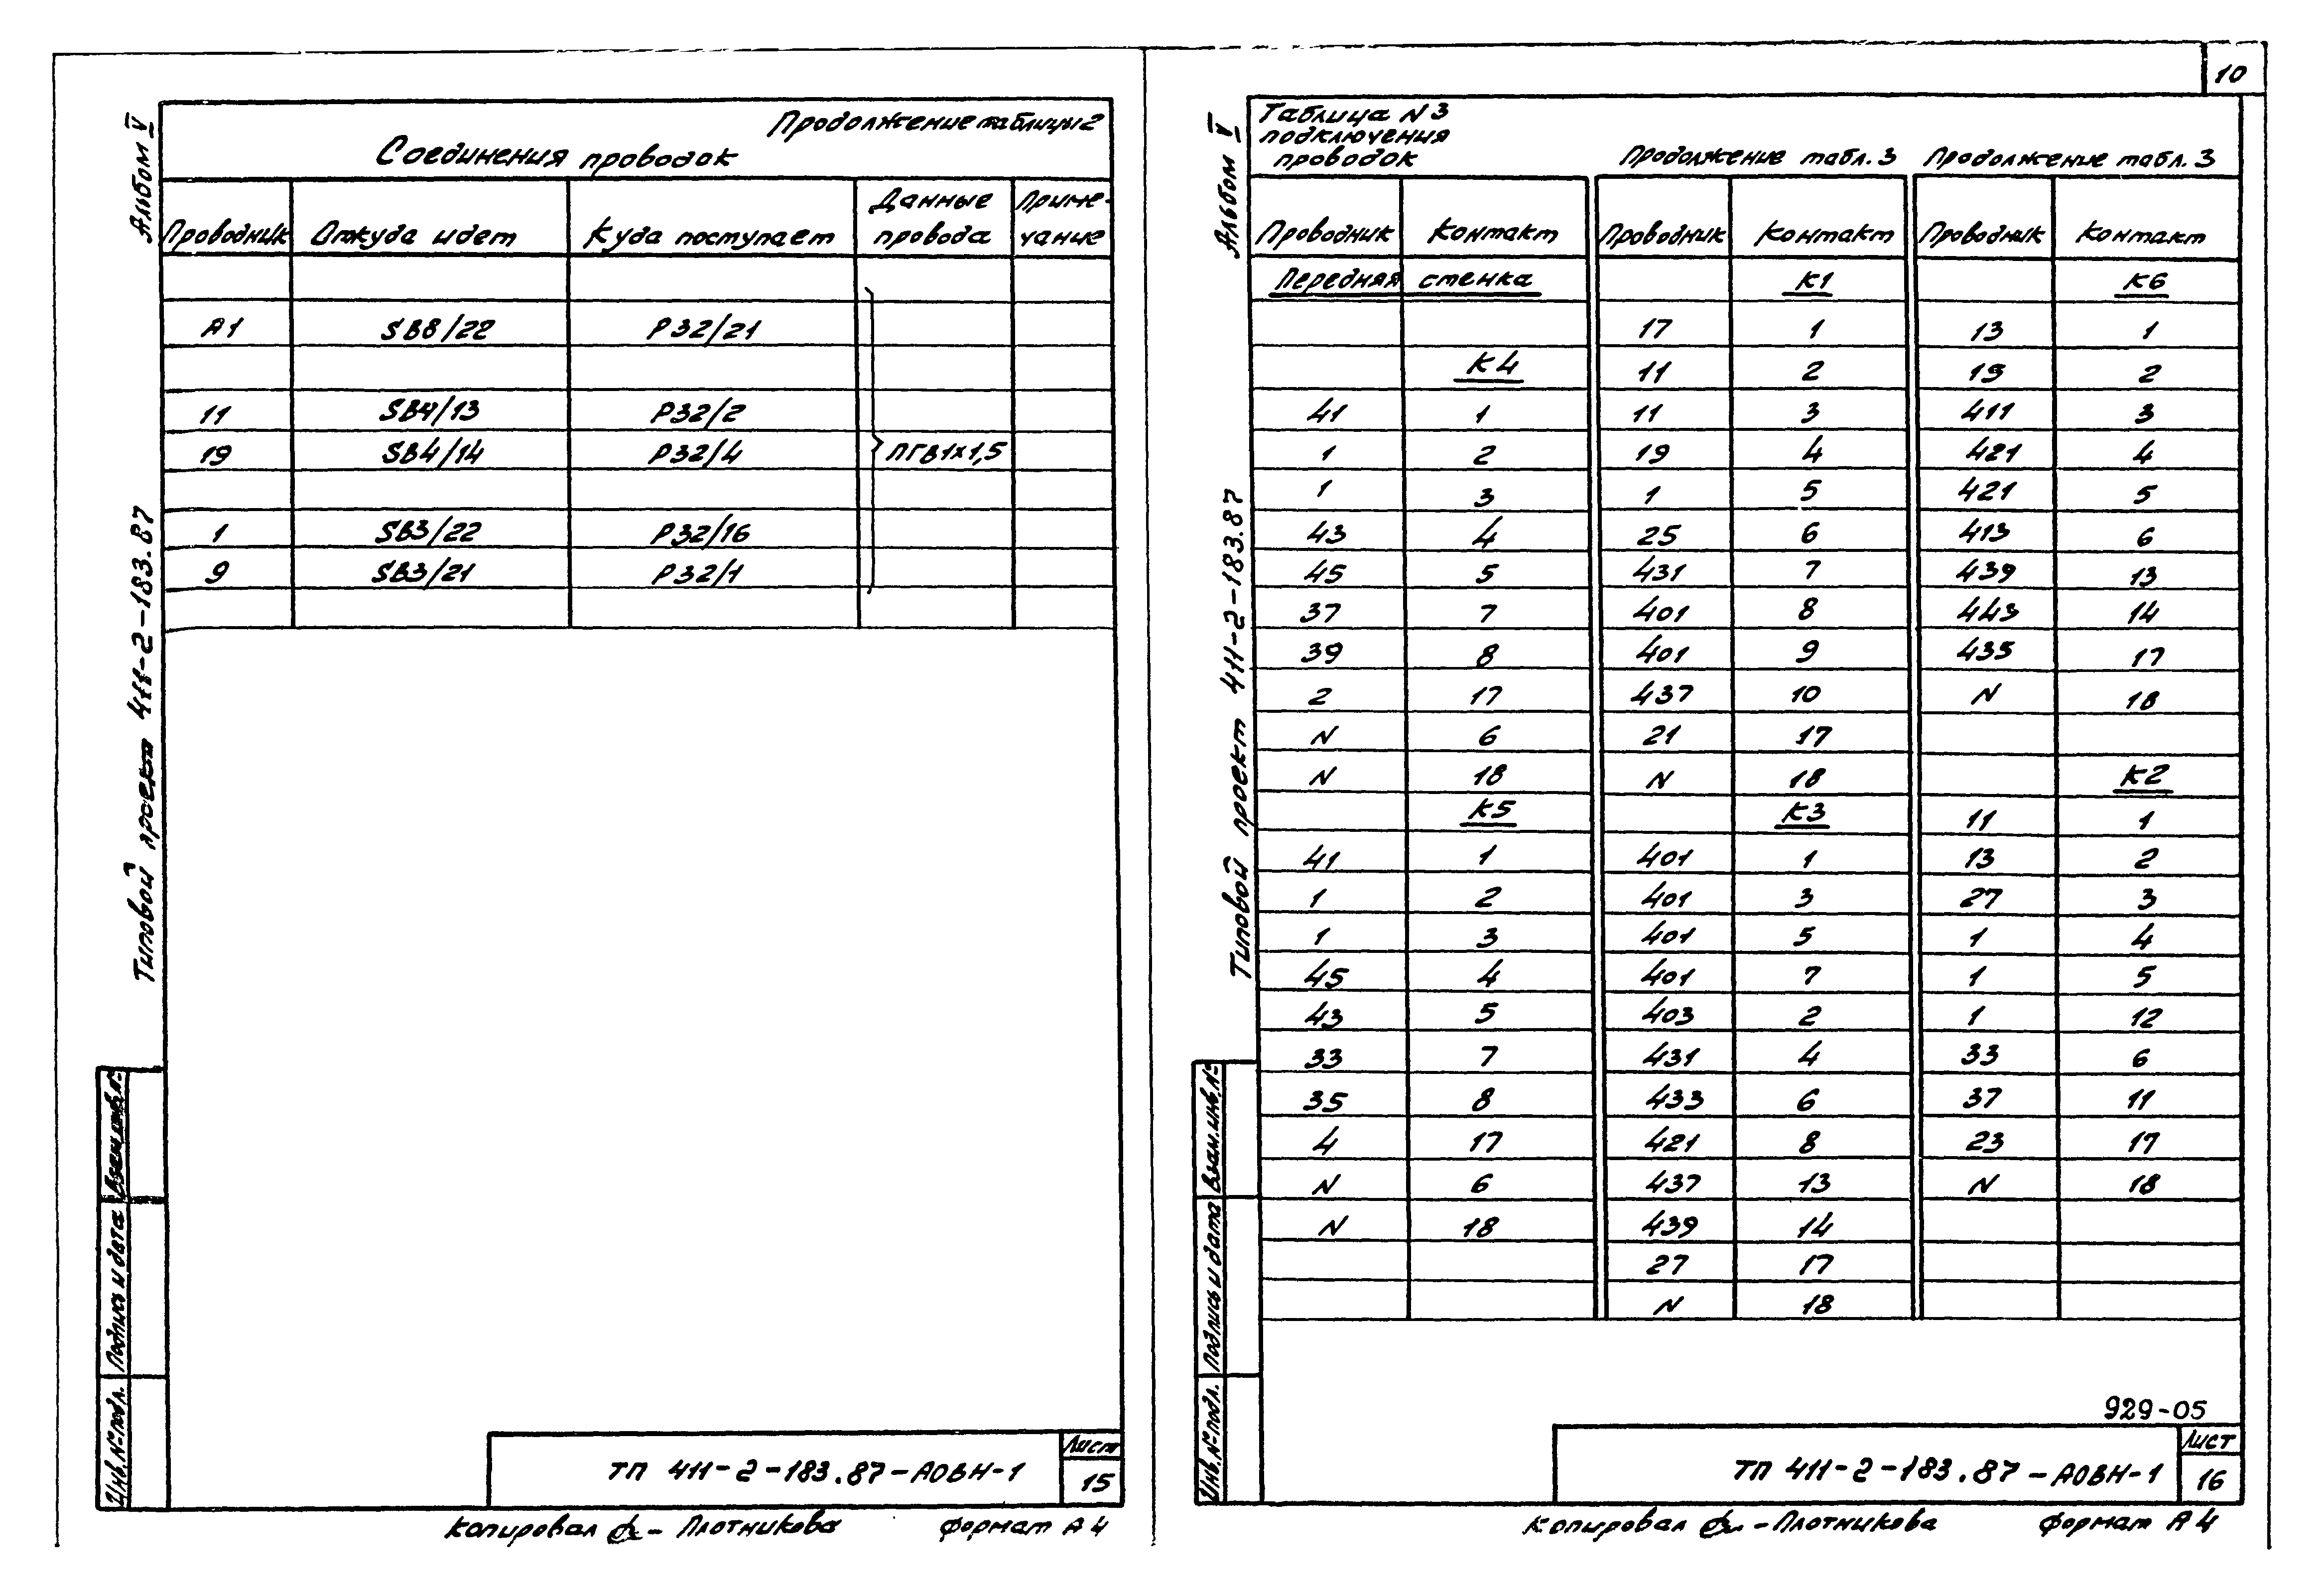 10
Альбом V
Типовой проект 411-2-183.87
Продолжение таблицы 2
Соединения проводок
Проводник | Откуда идет | Куда поступает | Данные провода | Приме-чание
А1 | SB8/22 | Р32/21
11 | SB4/13 | Р32/2
19 | SB4/14 | Р32/4 | ПГВ1х1,5
1 | SB3/22 | Р32/16
9 | SB3/21 | Р32/1
Взам.инв.№
Подпись и дата
Инв.№подл.
ТП 411-2-183.87-АОВН-1
Лист
15
Копировал - Плотникова формат А4
Альбом V
Типовой проект 411-2-183.87
Таблица N3
подключения
проводок
Продолжение табл.3 Продолжение табл.3
Проводник | Контакт | Проводник | Контакт | Проводник | Контакт
Передняя стенка | К1 | К6
17 | 1 | 13 | 1
К4 | 11 | 2 | 19 | 2
41 | 1 | 11 | 3 | 411 | 3
1 | 2 | 19 | 4 | 421 | 4
1 | 3 | 1 | 5 | 421 | 5
43 | 4 | 25 | 6 | 413 | 6
45 | 5 | 431 | 7 | 439 | 13
37 | 7 | 401 | 8 | 443 | 14
39 | 8 | 401 | 9 | 435 | 17
2 | 17 | 437 | 10 | N | 18
N | 6 | 21 | 17
N | 18 | N | 18 | К2
К5 | К3 | 11 | 1
41 | 1 | 401 | 1 | 13 | 2
1 | 2 | 401 | 3 | 27 | 3
1 | 3 | 401 | 5 | 1 | 4
45 | 4 | 401 | 7 | 1 | 5
43 | 5 | 403 | 2 | 1 | 12
33 | 7 | 431 | 4 | 33 | 6
35 | 8 | 433 | 6 | 37 | 11
4 | 17 | 421 | 8 | 23 | 17
N | 6 | 437 | 13 | N | 18
N | 18 | 439 | 14
27 | 17
N | 18
Взам.инв.№
Подпись и дата
Инв.№подл.
929-05
ТП 411-2-183.87-АОВН-1
Лист
16
Копировал - Плотникова формат А4